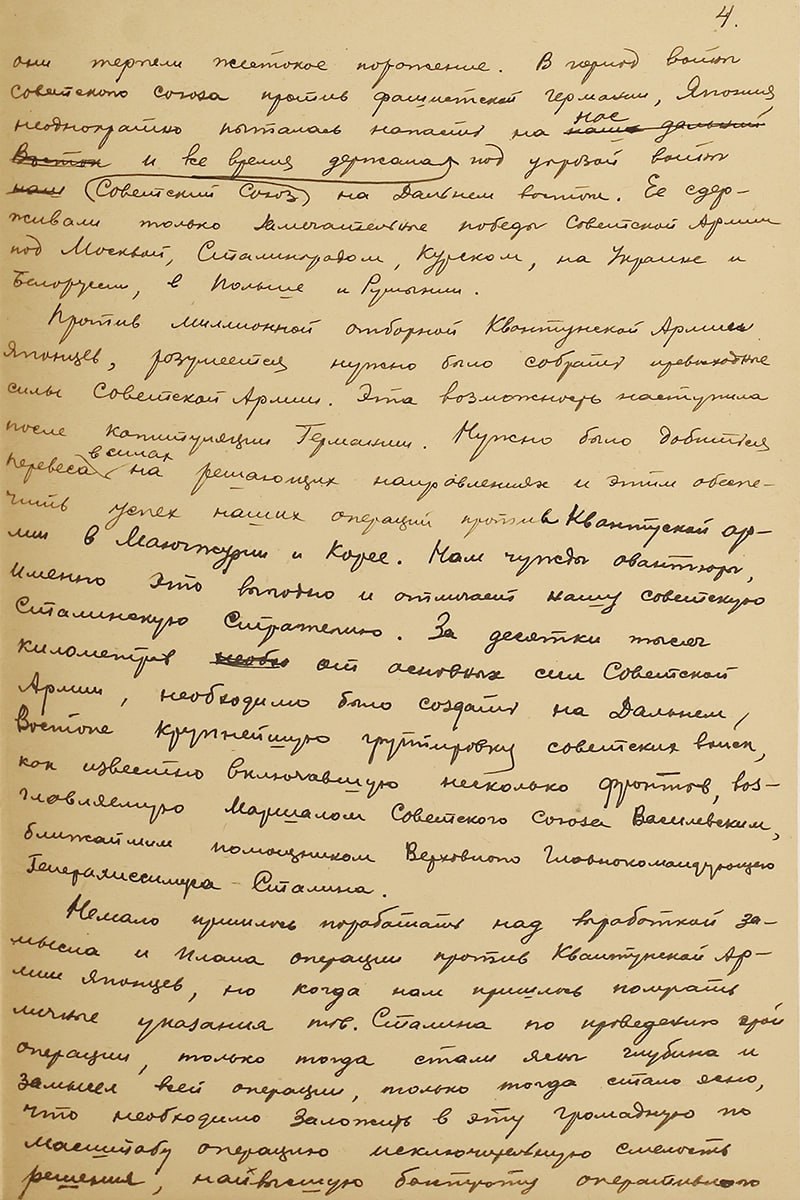 4.
они терпели жестокое поражение. В период войны
Советского Союза против фашистской Германии, Япония
неоднократно пыталась напасть на нас наш дальний
Восток и все время держала под угрозой войны
наш (Советский Союз) на Дальнем востоке. Ее сдер-
живали только замечательные победы Советской Армии
под Москвой, Сталинградом, Курском, на Украине и
Белоруссии, в Польше и Румынии.
Против миллионной отборной Квантунской Армии
Японцев, разумеется нужно было собрать превосходные
силы Советской Армии. Эта возможность наступила
после капитуляции Германии. Нужно было добиться
перевеса в силах на решающих направлениях и этим обеспе-
чить успех наших операций против Квантуской ар-
мии в Манчжурии и Корее. Нам чужды авантюры,
именно это выгодно и отличает нашу советскую
Сталинскую Стратегию. За десятки тысяч
километров необхо от основных сил Советской
Армии, необходимо было создать на Дальнем,
Востоке крупнейшую группировку советских войск,
как известно включавшую несколько фронтов, воз-
главляемую Маршалом Советского Союза Василевским,
ближайшим помощником Верховного Главнокомандующего
Генералиссимуса - Сталина.
Немало пришлось поработать над выработкой за-
мысла и плана операции против Квантунской Ар-
мии Японцев, но когда нам пришлось получать
личные указания тов. Сталина по проведению этой
операции, только тогда стали ясны глубина и
замысел всей операции, только тогда стало ясно,
что необходимо заложить в эту громадную по
масштабу операцию исключительную смелость
решения, наивысшую быстроту оперативного